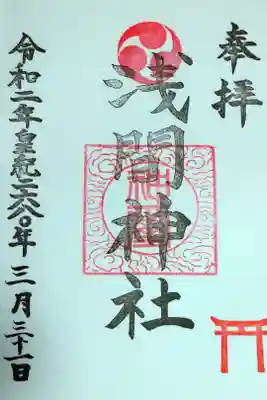 奉拝
浅間神社
令和二年皇紀二六八〇年 三月三十一日